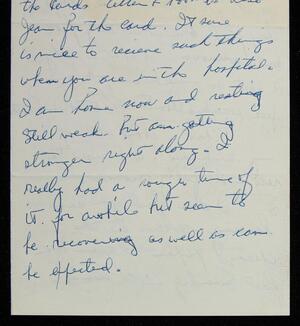 the cards letter &
Jean, for the card. It sure
is nice to recieve such things
when you are in the hospital.
I am home now and resting
still weak. But am getting
stronger right along. I
really had a rough time of
it for awhile but seem to
be recovering as well as can
be expected.